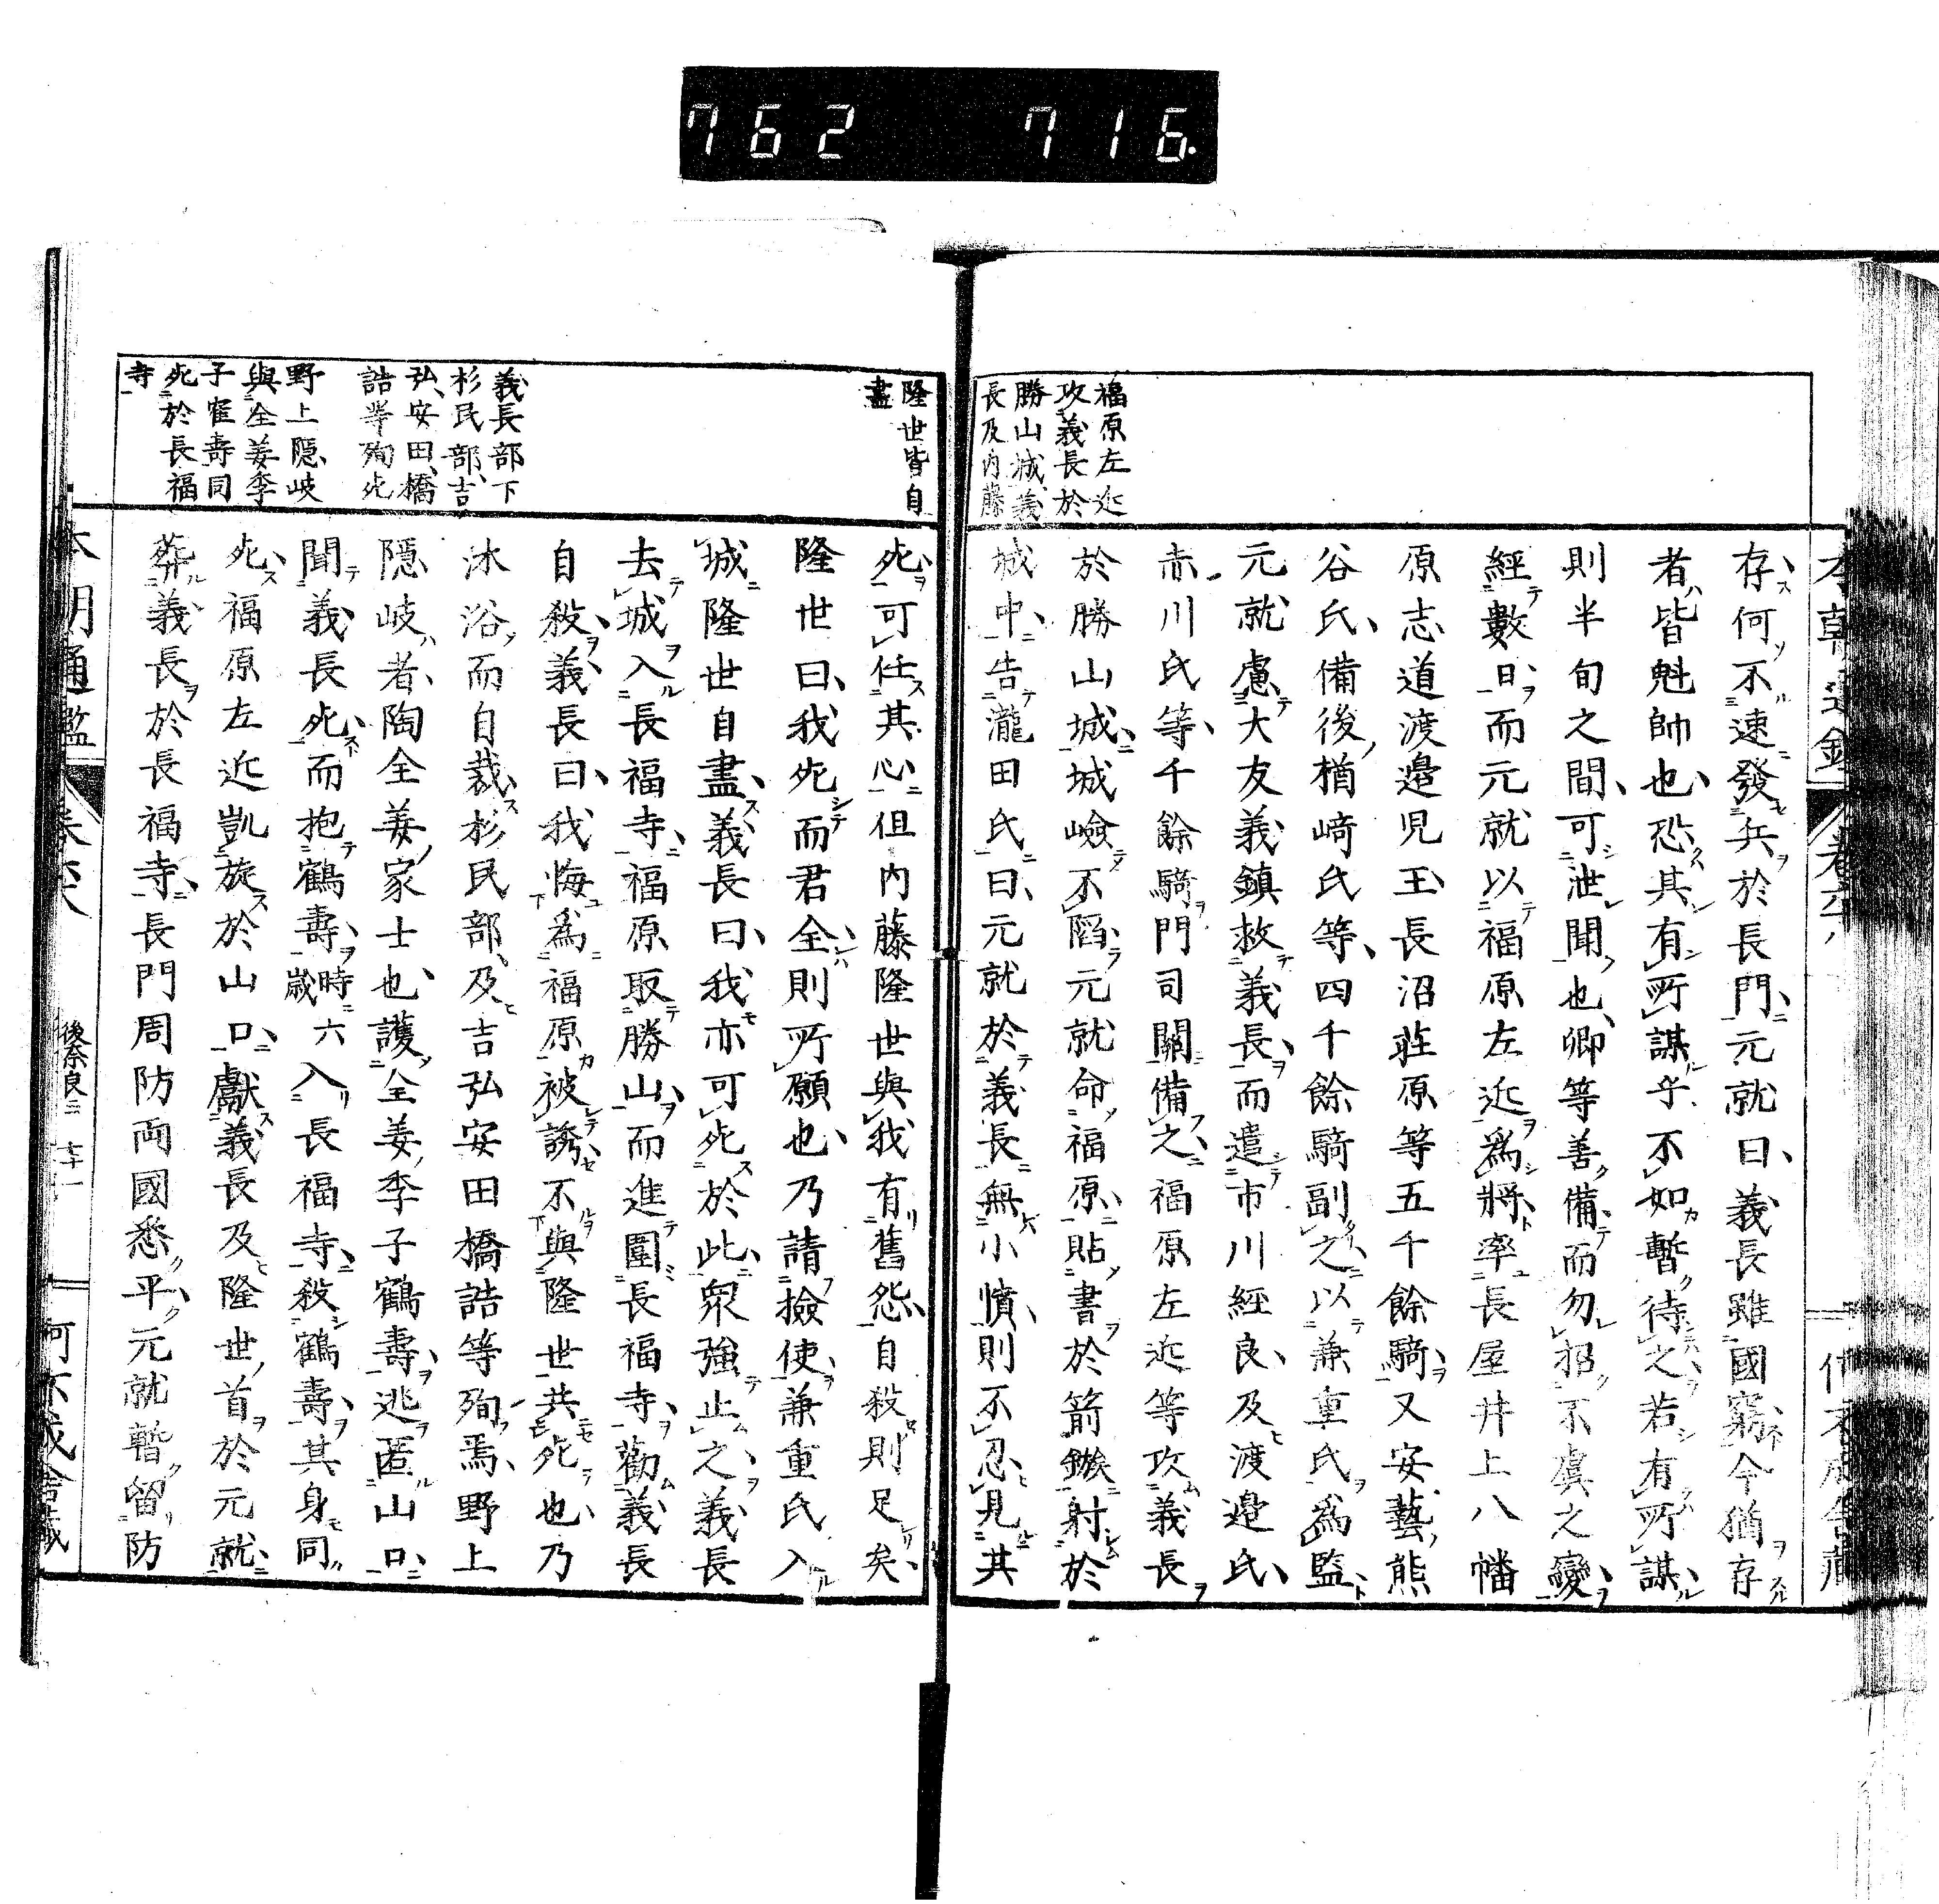 762 716.
福原左近
攻義長於
勝山城義
長及内藤
存何不速發兵於長門元就曰義長雖國窮今猶存
者皆魁帥也恐其有所謀乎不如暫待之若有所謀
則半旬之間可泄聞也卿等善備而勿招不虞之變
經數日而元就以福原左近為將率長屋井上八幡
原志道渡邉兒玉長沼莊原等五千餘騎又安藝熊
谷氏備後楢崎氏等四千餘騎副之以兼重氏為監
元就慮大友義鎮救義長而遣市川經良及渡邉氏
赤川氏等千餘騎門司關備之福原左近等攻義長
於勝山城城嶮不陷元就命福原貼書於箭鏃射於
城中告瀧田氏曰元就於義長無小憤則不忍見其
隆世皆自
盡
義長部下
杉民部吉
弘安田橋
詰等殉死
野上隠岐
與全姜季
子寉壽同
死於長福
寺
死可任其心但内藤隆世與我有舊怨自殺則足矣
隆世曰我死而君全則所願也乃請撿使兼重氏入
城隆世自盡義長曰我亦可死於此衆強止之義長
去城入長福寺福原取勝山而進圍長福寺勸義長
自殺義長曰我悔為福原被誘不與隆世共死也乃
沐浴而自裁杉民部及吉弘安田橋詰等殉焉野上
隠岐者陶全姜家士也護全姜季子鶴壽逃匿山口
聞義長死而抱鶴壽時六歳入長福寺殺鶴壽其身同
死福原左近凱旋於山口獻義長及隆世首於元就
葬義長於長福寺長門周防兩國悉平元就暫留防
本朝通鑑
後奈良二